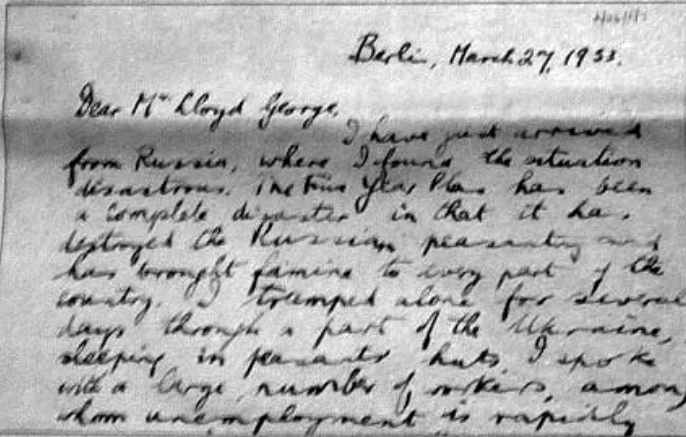 Berlin, March 27, 1933.
Dear Mr Lloyd George,
I have just arrived
from Russia, where I found the situation
disastrous. The Five Year Plan has been
a complete disaster in that it has
destroyed the Russian peasantry and
has brought famine to every part of the
country. I tramped alone for several
days through a part of the Ukraine,
sleeping in peasants' huts. I spoke
with a large number of workers, among
whom unemployment is rapidly